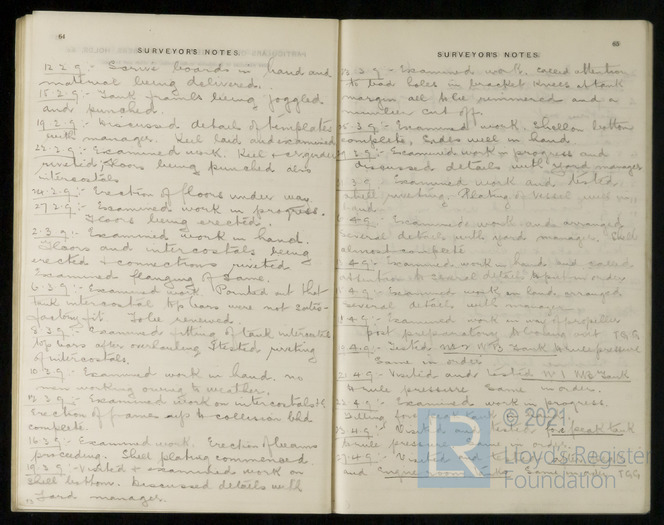 64
SURVEYOR'S NOTES.
12.2.9:- Scrive boards in hand and
material being delivered.
15.2.9:- Tank frames being joggled
and punched.
19.2.9:- Discussed details of templates
with manager. Keel laid and examined
22.2.9:- Examined work. Keel
riveted, floors being punched also
intercostals
24.2.9:- Erection of floors under way.
27.2.9:- Examined work in progress.
Floors being erected.
2.3.9:- Examined work in hand.
Floors and intercostals being
erected & connections riveted
Examined flanging of same.
6.3.9:- Examined work. Pointed out that
tank intercostal top bars were not satis-
factory fit. To be renewed.
8.3.9:- Examined fitting of tank intercostal
top bars after overhauling & tested riveting
of intercostals.
10.3.9:- Examined work in hand. no
men working owing to weather.
13.3.9:- Examined work on intercostals &
Erection of frames up to collision bhd
complete.
16.3.9:- Examined work. Erection of beams
proceeding. Shell plating commenced.
19.3.9:- Visited & examined work on
shell bottom. Discussed details with
Yard manager.
65
SURVEYOR'S NOTES.
23.3.9:- Examined work, called attention
to bad holes in bracket knees at tank
margin, all to be rimmered and a
number cut off.
25.3.9:- Examined work. Shell on bottom
complete, sides well in hand.
29.3.9:- Examined work in progress and
discussed details with yard manager
3.9:- Examined work and tested
shell riveting. Plating of vessel well in
hand.
4.9:- Examined work and arranged
several details with yard manager. Shell
almost complete
4.9:- Examined work in hand and called
attention to several details to put in order
4.9:- Examined work in hand, arranged
several details with manager.
4.9:- Examined work in way of propeller
post preparatory to boring out TGG
4.9:- Tested No 2 WB Tank to rule pressure
Same in order
21.4.9:- Visited and tested No 1 WB Tank
to rule pressure Same in order.
4.9:- Examined work in progress.
Filling fore peak tank
23.4.9:- Visited and tested fore peak tank
to rule pressure same in order.
27.4.9:- Visited and tested
and Engine room tanks Same in order TGG
R
© 2021
Lloyd's Register
Foundation